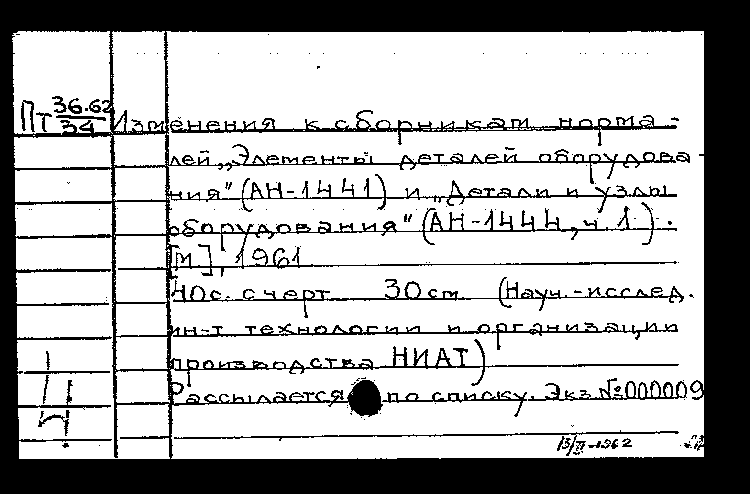 Пт 36.62/34 Изменения к сборникам норма-
лей „Элементы деталей оборудова-
ния" (АН-1441) и „Детали и узлы
оборудования" (АН-1444, ч. 1).
[М], 1961
40с. с черт. 30см (Науч.-исслед.
ин-т технологии и организации
производства НИАТ)
Рассылается по списку. Экз. №000009